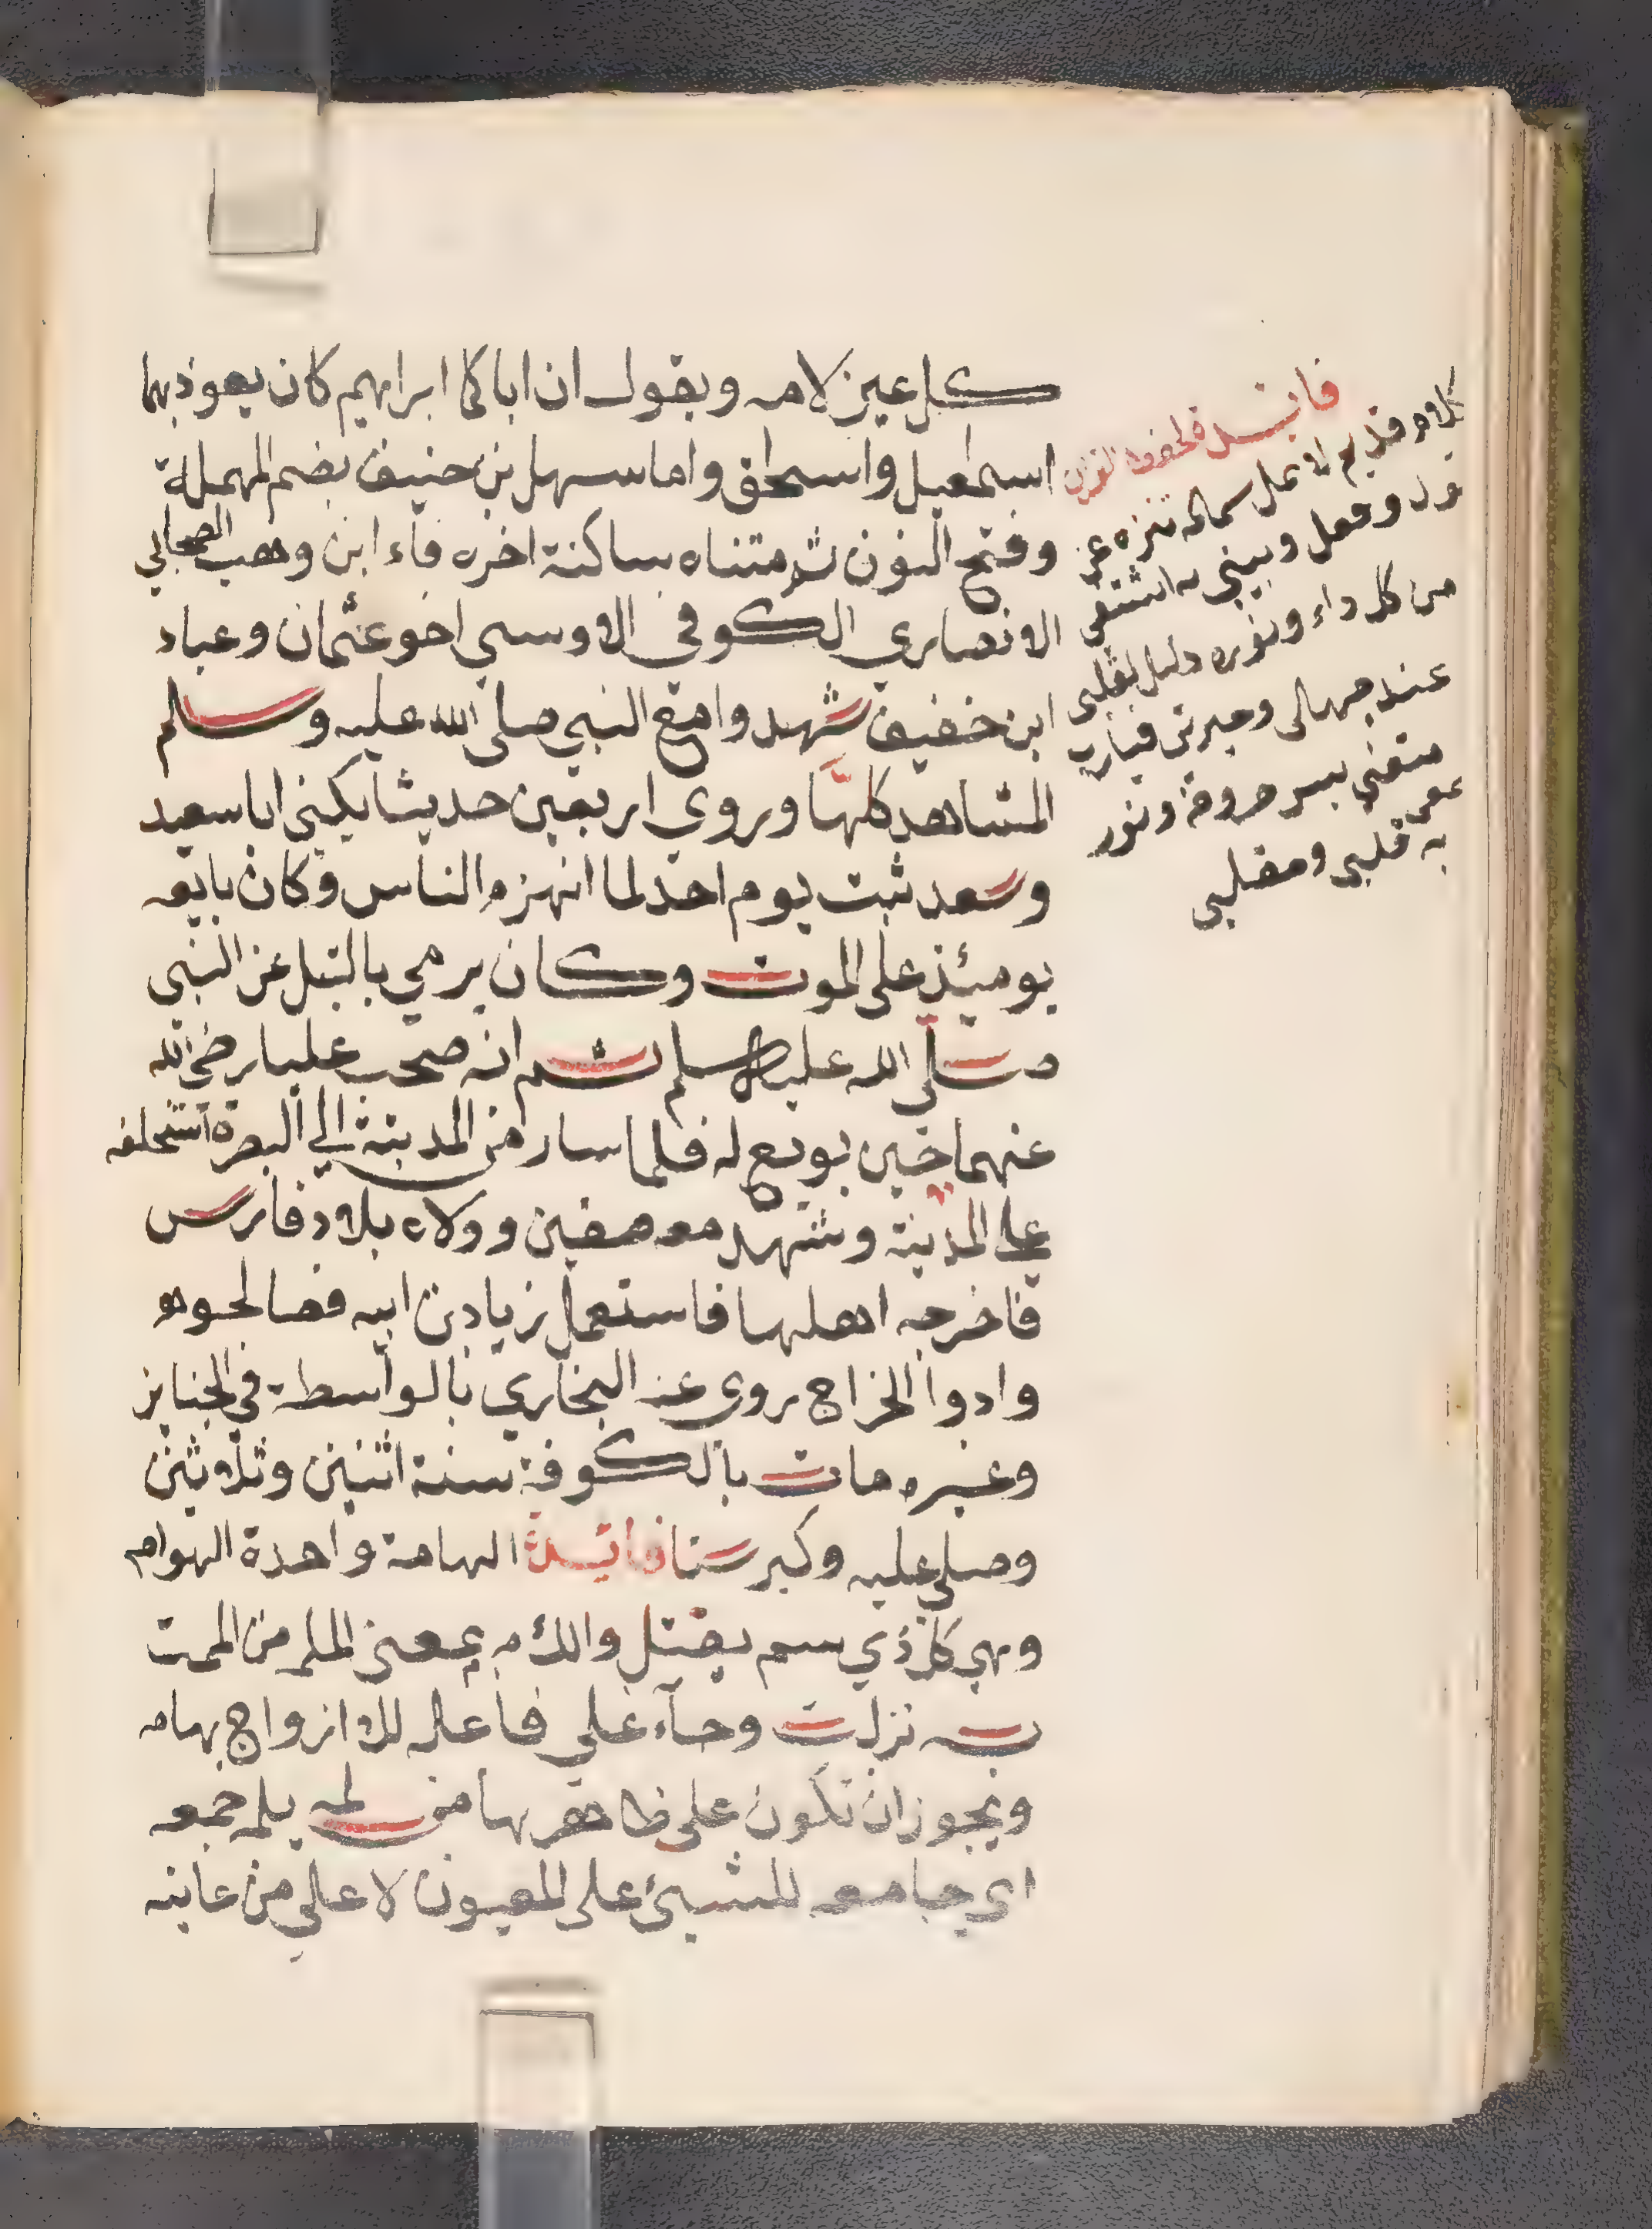 كل عين لامه ويقول ان اباكما ابراهيم كان يعوذ بهما
اسمعيل واسحاق واما سهل بن حنيف بضم المهملة
وفتح النون ثم مثناه ساكنة اخره فاء ابن وهب الصحابي
الانصاري الكوفي الاوسي اخو عثمان وعباد
ابن خفيف شهد وامع النبي صلى الله عليه وسلم
المشاهد كلها وروي اربعين حديثا يكنى ابا سعيد
وسعد ثبت يوم احد لما انهزم الناس وكان بايعه
يومئذ على الموت وكان يرمي بالنبل عن النبي
صلي الله عليه وسلم ثم انه صحب عليا رضي الله
عنهما حين بويع له فلما سار من المدينة الي البصرة استخلفه
علي المدينة وشهد معه صفين وولاه بلاد فارس
فاخرجه اهلها فاستعمل زياد بن ابيه فصالحوه
وادوا الخراج روى عنه البخاري بالواسطة في الجنايز
وغيره مات بالكوفة سنة اثنين وثلاثين
وصلي عليه وكبر ستا فائدة الهامة واحدة الهوام
وهي كل ذي سم يقتل واللامه بمعنى الملم من الممت
به نزلت وجآء علي فاعله للازواج بهامه
ويجوز ان تكون على ظاهر بها من لمه يلمه جمعه
اي جامعه للشيئ على المعيون لا علي من عاينه
فائدة لحفظ القران
كلام قديم لا يمل سماعه تنزه عن
قول وفعل ونيتي به اشتفي
من كل داء ونوره دليل لقلبي
عند جهلي وحيرتي فيارب
متعني بسر حروفه ونور
به قلبي ومقلبي